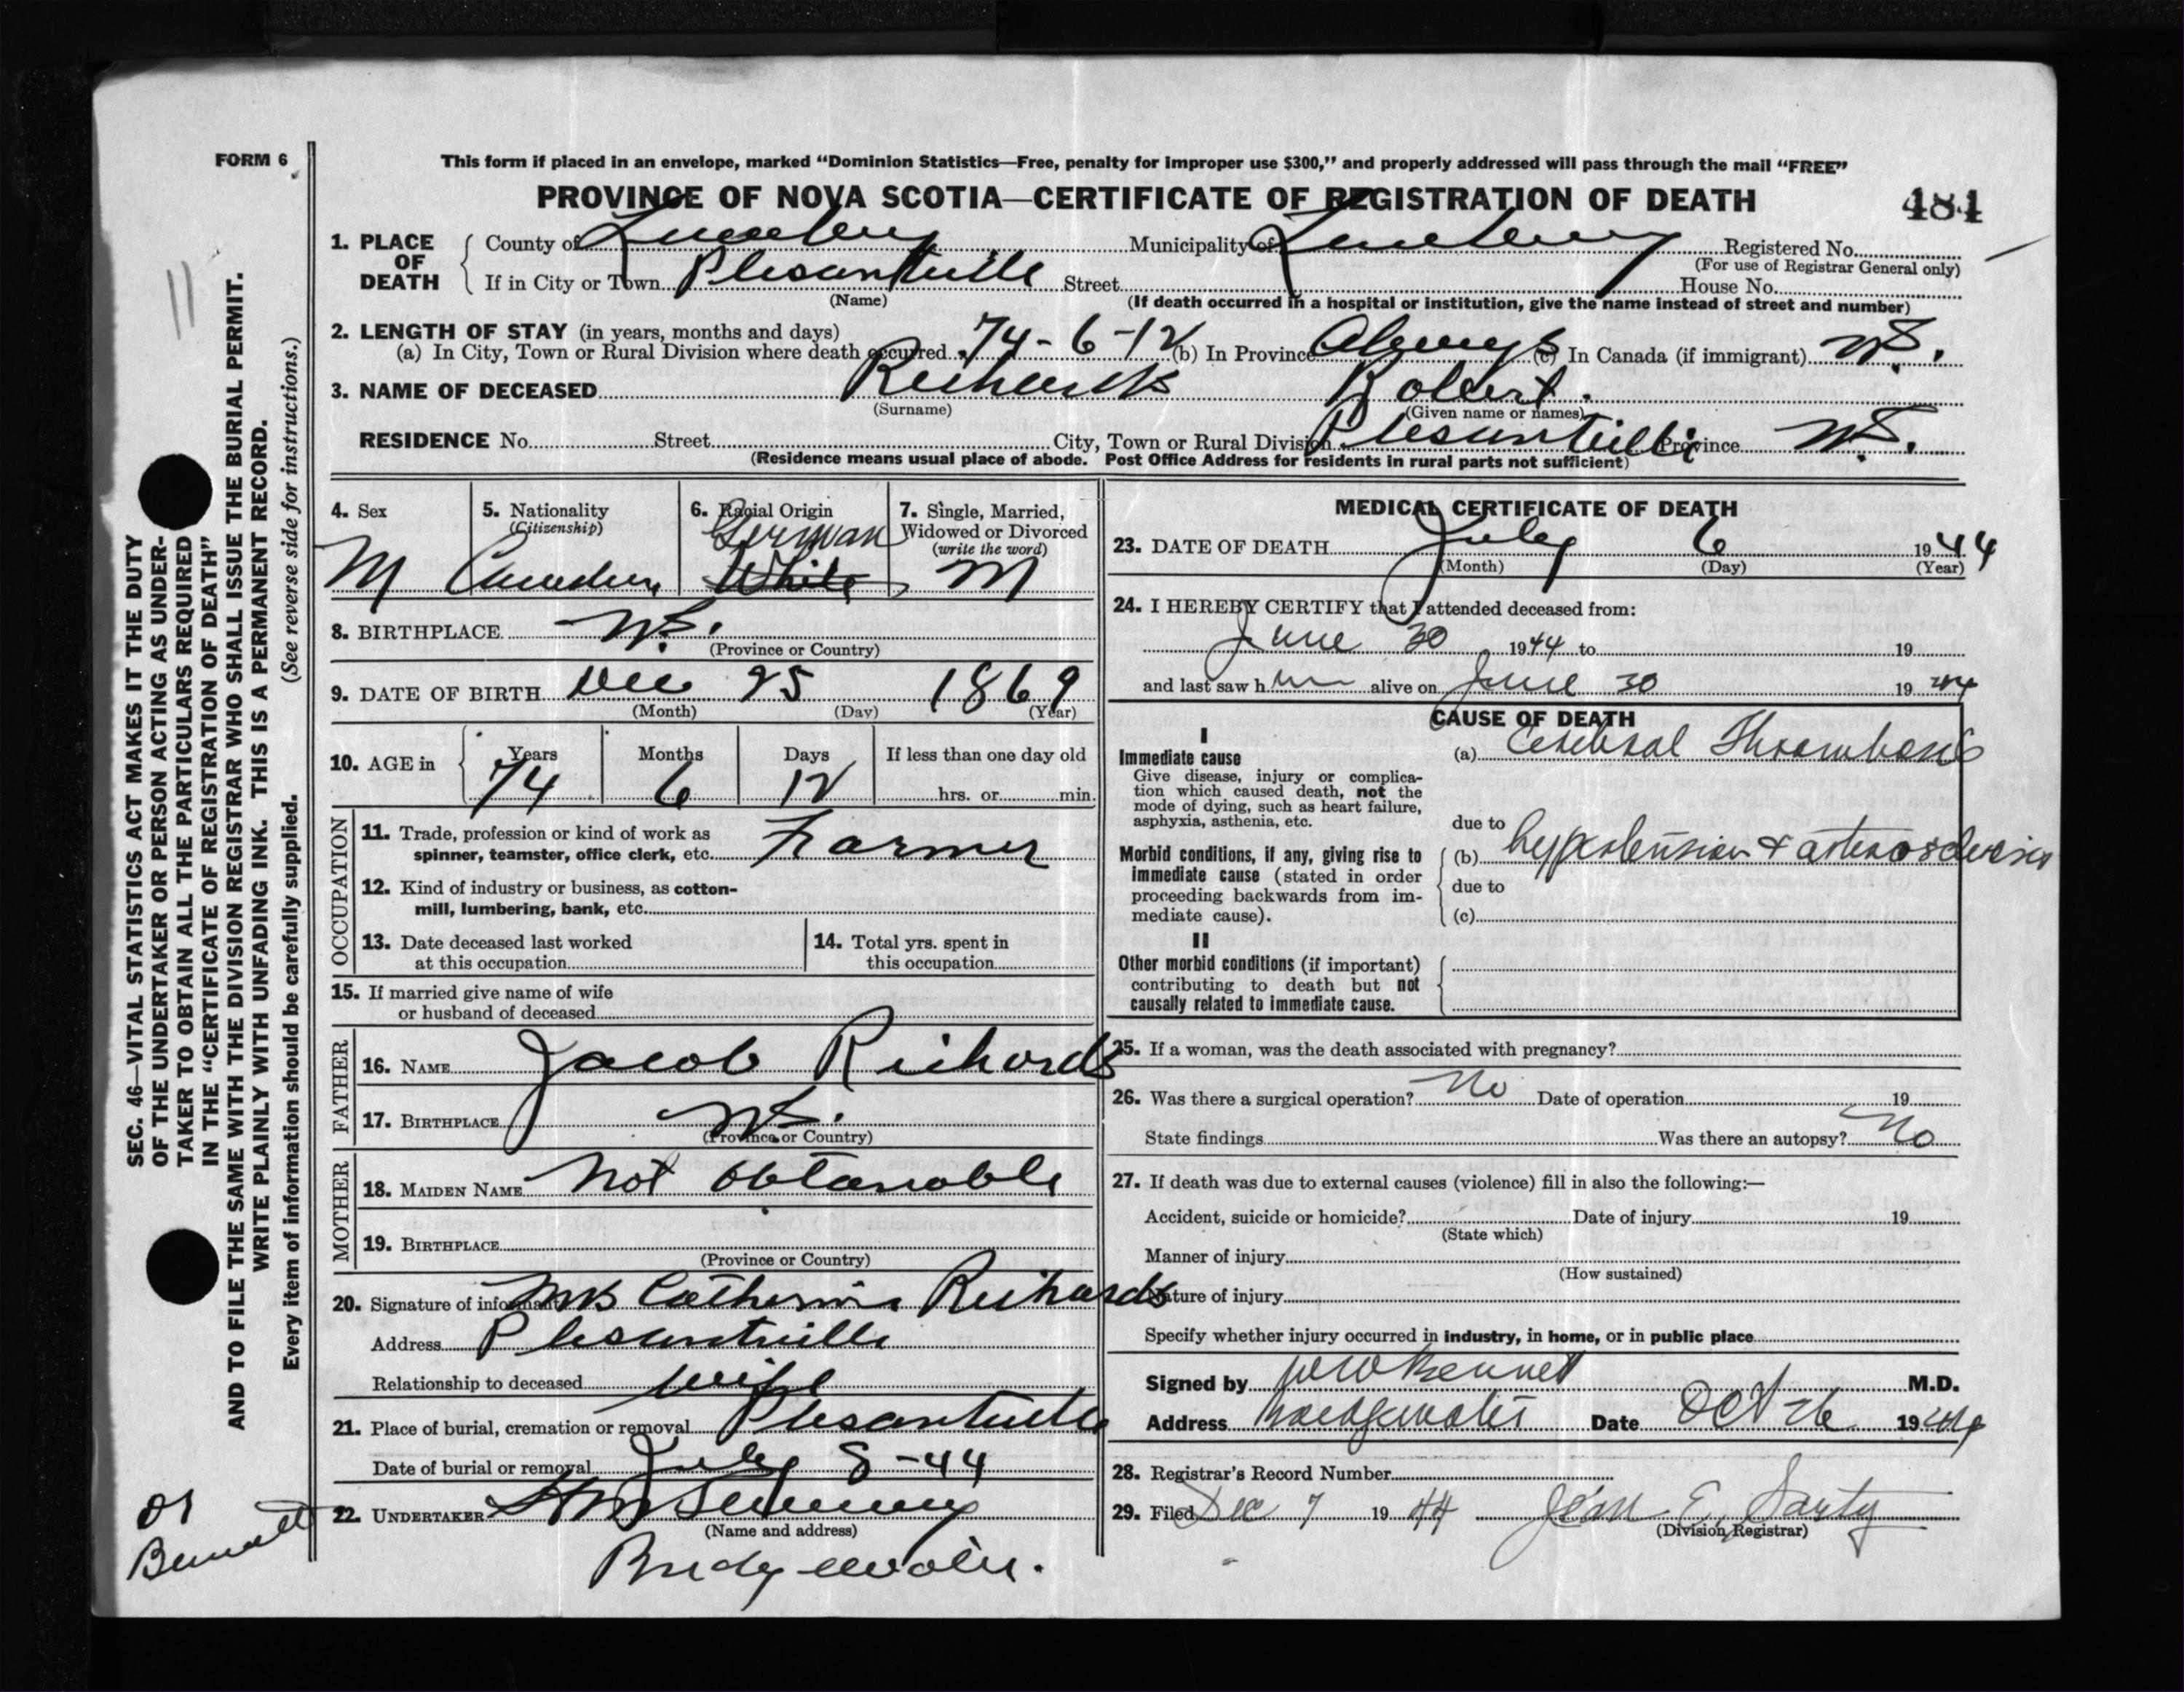 FORM 6
This form if placed in an envelope, marked “Dominion Statistics—Free, penalty for improper use $300,” and properly addressed will pass through the mail “FREE”
PROVINCE OF NOVA SCOTIA—CERTIFICATE OF REGISTRATION OF DEATH
484
1. PLACE OF DEATH
County of Lunenburg Municipality of Lunenburg Registered No.
(For use of Registrar General only)
If in City or Town Plesantville Street House No.
(Name) (If death occurred in a hospital or institution, give the name instead of street and number)
2. LENGTH OF STAY (in years, months and days)
(a) In City, Town or Rural Division where death occurred 74-6-12 (b) In Province Always (c) In Canada (if immigrant) N.S.
3. NAME OF DECEASED Richards Robert.
(Surname) (Given name or names)
RESIDENCE No. Street City, Town or Rural Division Plesantville Province N.S.
(Residence means usual place of abode. Post Office Address for residents in rural parts not sufficient)
4. Sex
M
5. Nationality
(Citizenship)
Canadian
6. Racial Origin
German
White
7. Single, Married,
Widowed or Divorced
(write the word)
M
8. BIRTHPLACE N.S.
(Province or Country)
9. DATE OF BIRTH Dec 25 1869
(Month) (Day) (Year)
10. AGE in
Years Months Days If less than one day old
74 6 12 hrs. or min.
OCCUPATION
11. Trade, profession or kind of work as
spinner, teamster, office clerk, etc. Farmer
12. Kind of industry or business, as cotton-
mill, lumbering, bank, etc.
13. Date deceased last worked
at this occupation
14. Total yrs. spent in
this occupation
15. If married give name of wife
or husband of deceased
FATHER
16. NAME Jacob Richards
17. BIRTHPLACE N.S.
(Province or Country)
MOTHER
18. MAIDEN NAME Not obtanable
19. BIRTHPLACE
(Province or Country)
20. Signature of informant Mrs Catherine Richards
Address Plesantville
Relationship to deceased wife
21. Place of burial, cremation or removal Plesantville
Date of burial or removal July 8-44
22. UNDERTAKER
(Name and address)
Bridgewater.
MEDICAL CERTIFICATE OF DEATH
23. DATE OF DEATH July 6 1944
(Month) (Day) (Year)
24. I HEREBY CERTIFY that I attended deceased from:
June 30 1944 to 19
and last saw him alive on June 30 1944
CAUSE OF DEATH
I
Immediate cause
Give disease, injury or complica-
tion which caused death, not the
mode of dying, such as heart failure,
asphyxia, asthenia, etc.
(a) Cerebral Thrombosis
due to
Morbid conditions, if any, giving rise to
immediate cause (stated in order
proceeding backwards from im-
mediate cause).
(b) hypertension & arteriosclerosis
due to
(c)
II
Other morbid conditions (if important)
contributing to death but not
causally related to immediate cause.
25. If a woman, was the death associated with pregnancy?
26. Was there a surgical operation? No Date of operation 19
State findings Was there an autopsy? No
27. If death was due to external causes (violence) fill in also the following:—
Accident, suicide or homicide? Date of injury 19
(State which)
Manner of injury
(How sustained)
Nature of injury
Specify whether injury occurred in industry, in home, or in public place
Signed by W W Bennett M.D.
Address Bridgewater Date Oct 26 1944
28. Registrar's Record Number
29. Filed Dec 7 1944 E. Sarty
(Division Registrar)
SEC. 46—VITAL STATISTICS ACT MAKES IT THE DUTY
OF THE UNDERTAKER OR PERSON ACTING AS UNDER-
TAKER TO OBTAIN ALL THE PARTICULARS REQUIRED
IN THE “CERTIFICATE OF REGISTRATION OF DEATH”
AND TO FILE THE SAME WITH THE DIVISION REGISTRAR WHO SHALL ISSUE THE BURIAL PERMIT.
WRITE PLAINLY WITH UNFADING INK. THIS IS A PERMANENT RECORD.
Every item of information should be carefully supplied. (See reverse side for instructions.)
11
Dr
Bennett